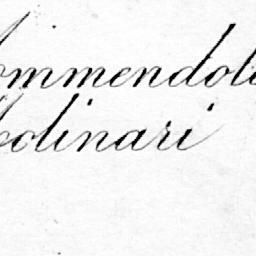 ommendola
Molinari